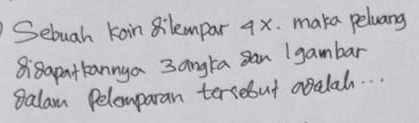 ) Sebuah koin dilempar 4x. maka peluang
didapatkannya 3 angka dan 1 gambar
dalam Pelemparan tersebut adalah...